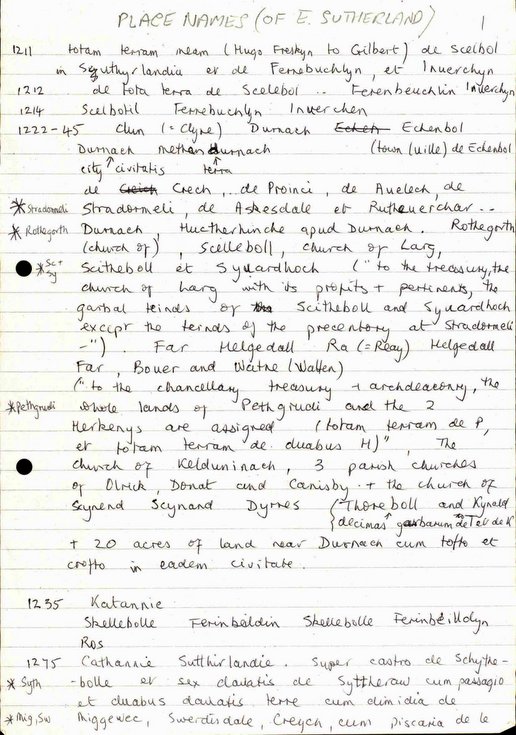 PLACE NAMES (OF E. SUTHERLAND) 1
1211 totam terram meam (Hugo Freskyn to Gilbert) de Scelbol
in Suthyrlandia et de Fernebuchlyn, et Inverchyn
1212 de tota terra de Scelebol .. Ferenbeuchlin Inverchyn
1214 Scelbotil Fernebuchlyn Inverchen
1222-45 Clun (= Clyne) Durnach Echen Echenbol
Durnach methandurnach (town (uille) de Echenbol
city ↑ civitatis terra
de Creich Crech, .. de Proinci, de Auelech, de
* Stradormeli Stradormeli, de Askesdale et Rutheuerchar ..
* Rothegorth Durnach, Huctherhinche apud Durnach. Rothegorth
(church of), Scelleboll, church of Larg,
* Sc + Sy Scitheboll et Syuardhoch ("to the treasury, the
church of Larg with its profits + pertinents, the
garbal teinds of Scitheboll and Syuardhoch
except the teinds of the precentory at Stradormeli
-"). Far Helgedall Ra (= Reay) Helgedall
Far, Bouer and Watne (Watten)
("to the chancellary treasury + archdeaconry, the
* Pethgrudi whole lands of Pethgrudi and the 2
Herkenys are assigned (totam terram de P,
et totam terram de duabus H)", The
church of Kelduninach, 3 parish churches
of Olrick, Donat and Canisby + the church of
Scynend Scynand Dyrnes (Thoreboll and Kynald
decimas ↑ garbarum de T et de K
+ 20 acres of land near Durnach cum tofto et
crofto in eadem civitate.
1235 Katannie
Skellebolle Ferinbeldin Skellebolle Ferinbeilldyn
Ros
1275 Cathannie Sutthirlandie. Super castro de Schythe-
* Syth -bolle et sex davatis de Syttheraw cum passagio
et duabus davatis terre cum dimidia de
* Mig, Sw Miggewec, Swerdisdale, Creych, cum piscaria de le